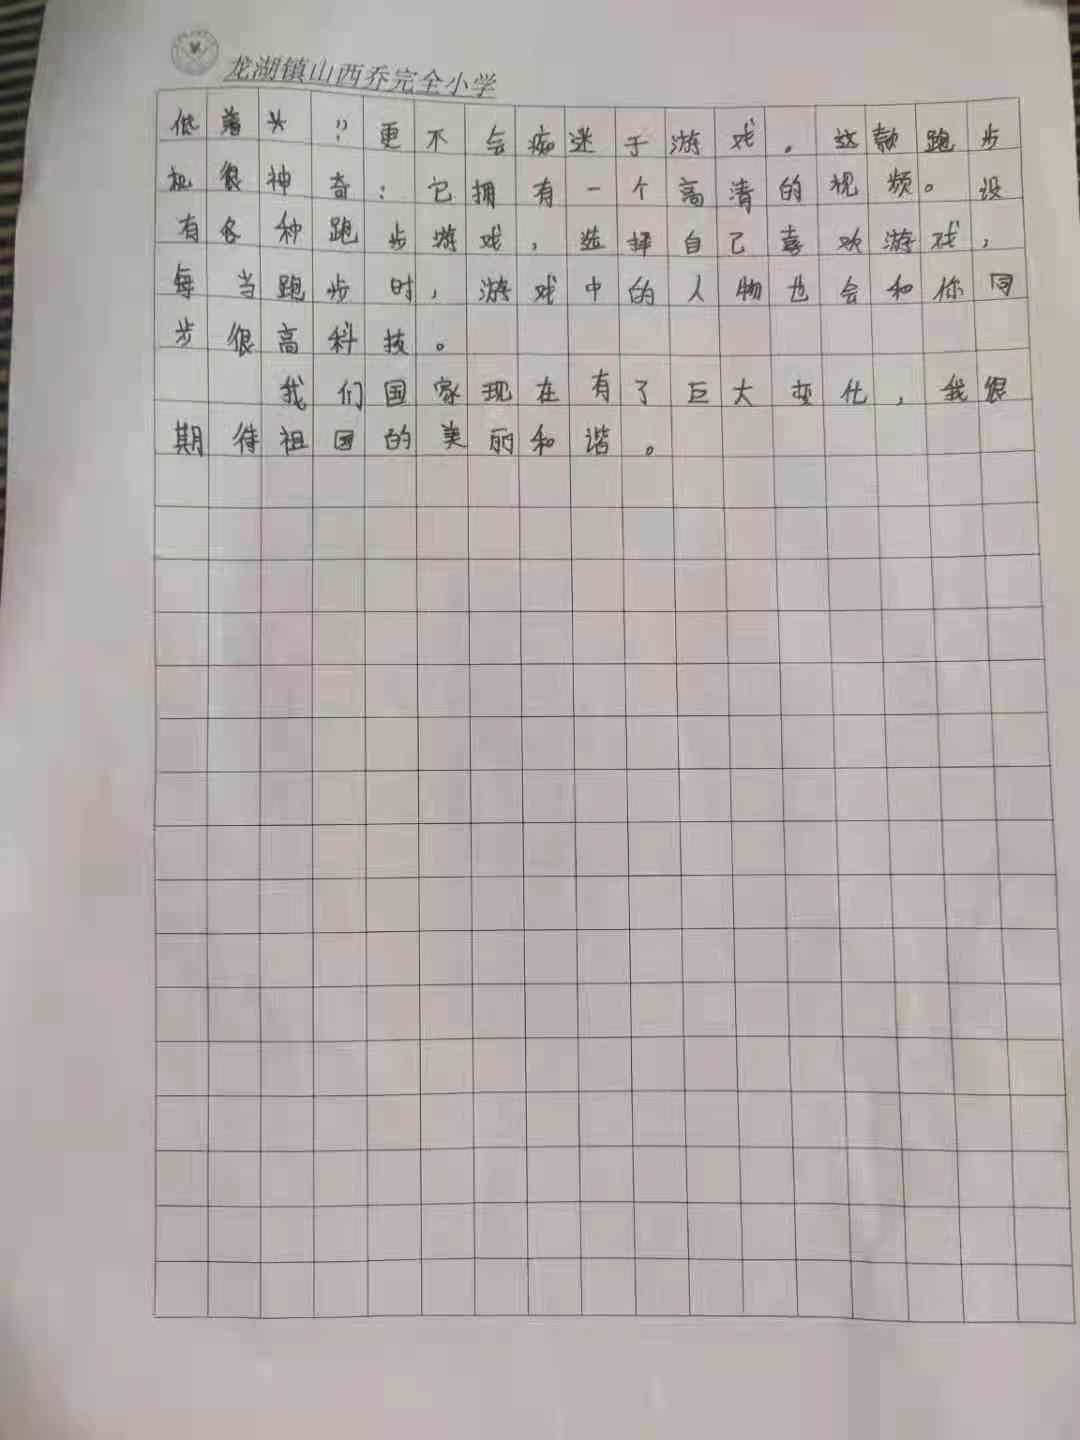 龙湖镇山西乔完全小学
低着头”；更不会痴迷于游戏。这款跑步
机很神奇：它拥有一个高清的视频。设
有各种跑步游戏，选择自己喜欢游戏，
每当跑步时，游戏中的人物也会和你同
步很高科技。
我们国家现在有了巨大变化，我很
期待祖国的美丽和谐。